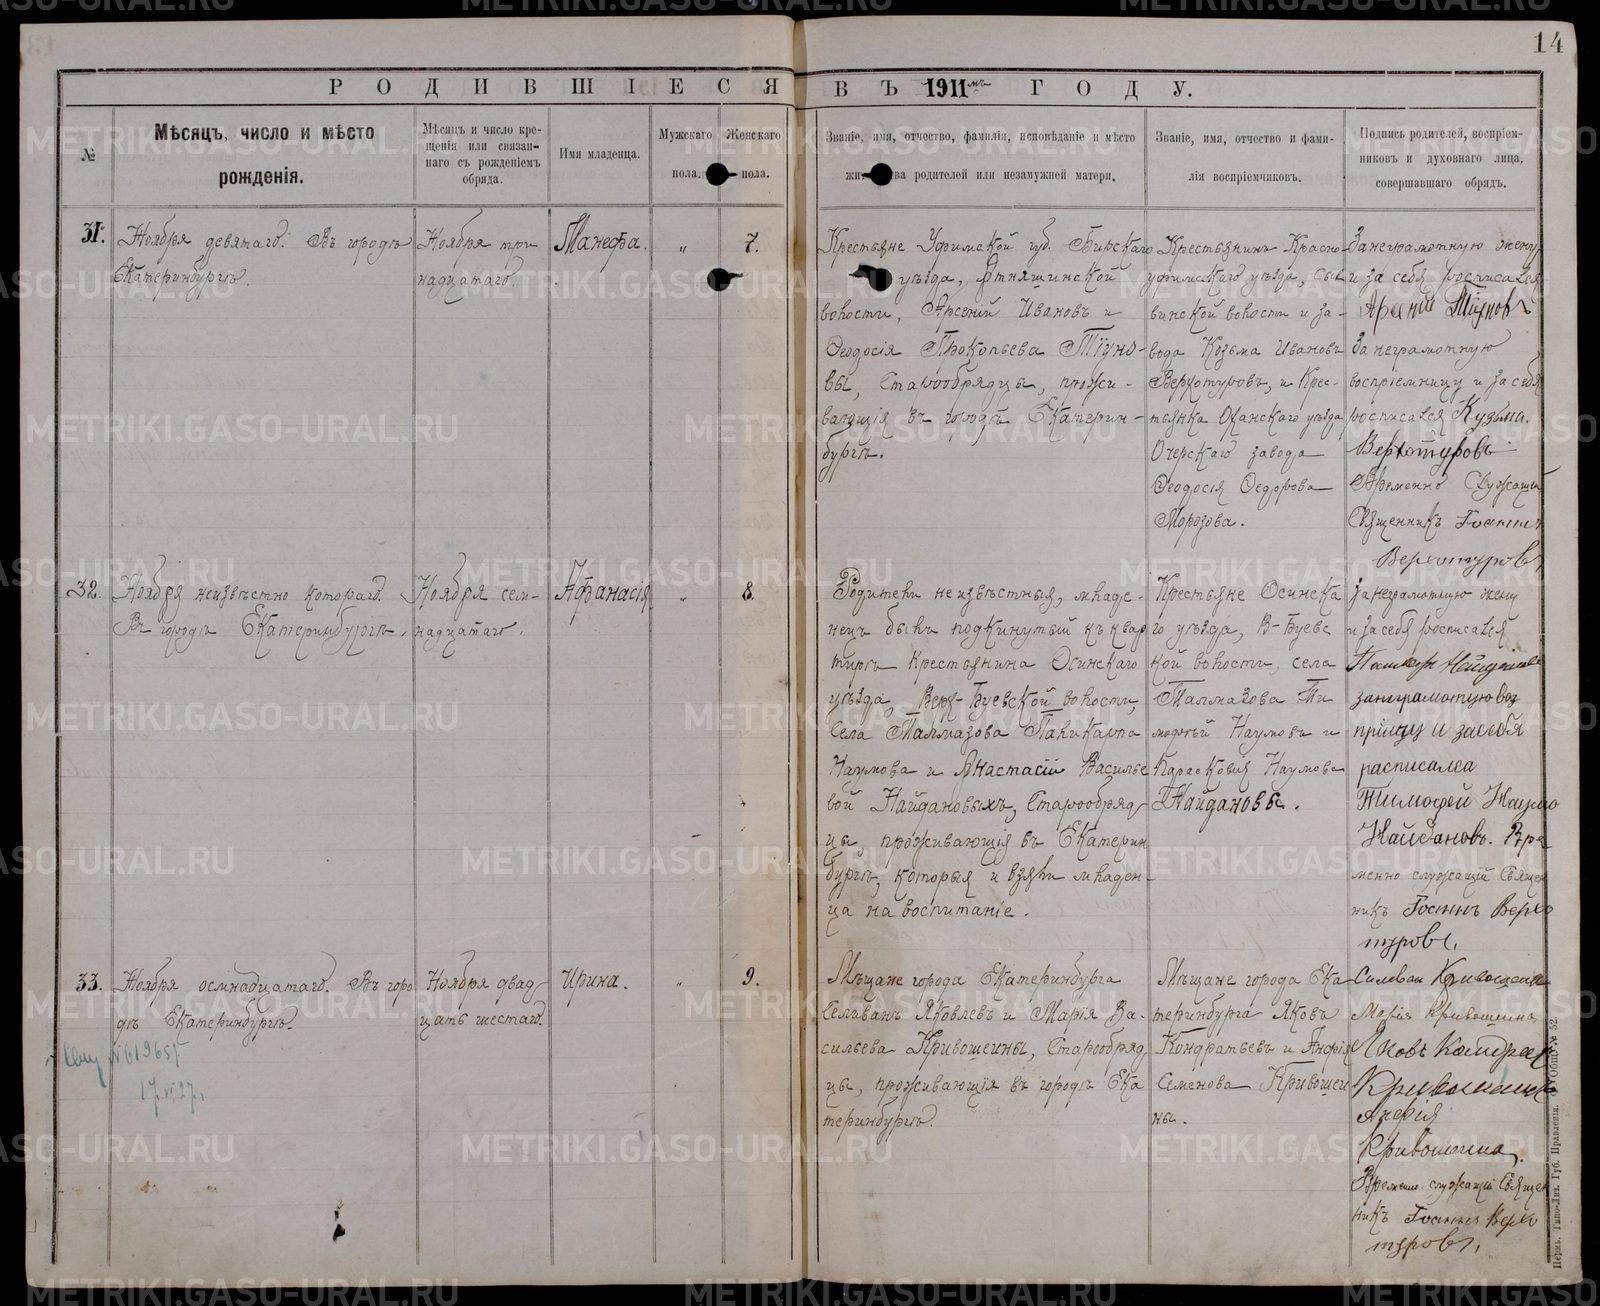 14
РОДИВШІЕСЯ ВЪ 1911мъ ГОДУ.
№
Мѣсяцъ, число и мѣсто
рожденія.
Мѣсяцъ и число кре-
щенія или связан-
наго съ рожденіемъ
обряда.
Имя младенца.
Мужскаго
пола.
Женскаго
пола.
Званіе, имя, отчество, фамилія, исповѣданіе и мѣсто
жи ва родителей или незамужней матери.
Званіе, имя, отчество и фами-
лія воспріемчиковъ.
Подпись родителей, воспріем-
никовъ и духовнаго лица,
совершавшаго обрядъ.
31.
Ноября девятаго. Въ городѣ
Екатеринбургѣ.
Ноября три
надцатаго.
Манефа.
„
7.
Крестьяне Уфимской губ. Бирскаго
уѣзда, Ятняшинской
волости, Арсеній Ивановъ и
Ѳеодосія Прокопьева Тіуно-
вы, Старообрядцы, прожи-
вающія въ городѣ Екатерин-
бургѣ.
Крестьянинъ Красно
уфимскаго уѣзда, Сы
винской волости и за-
вода Козьма Ивановъ
Верхотуровъ, и Крес-
тьянка Оханскаго уѣзда
Очерскаго завода
Ѳеодосія Ѳедорова
Морозова.
За неграмотную жену
и за себя росписался
Арсений Тіуновъ
За неграмотную
воспріемницу и за себя
росписался Кузьма
Верхотуровъ
Временно Служащій
Священникъ Іоаннъ
Верхотуровъ.
32.
Ноября неизвѣстно котораго.
Въ городѣ Екатеринбургѣ.
Ноября сем-
надцатаго.
Афанасія
„
8.
Родители неизвѣстныя, младе-
нецъ былъ подкинутый къ квар
тирѣ Крестьянина Осинскаго
уѣзда, Верх-Буевской волости,
Села Талмазова Паликарпа
Наумова и Анастасіи Василье
вой Найдановыхъ, Старообряд-
цы, проживающія въ Екатерин
бургѣ, которыя и взяли младен-
ца на воспитаніе.
Крестьяне Осинска
го уѣзда, В-Буевс
кой волости, села
Талмазова Ти
мофѣй Наумовъ и
Парасковія Наумова
Найдановы.
За неграмотную жену
и за себя росписался
занеграмотную вос
пріицу и засебя
расписалса
Тимофей Наумо
Найдановъ. Вре
менно служащій Священ
никъ Іоаннъ Верхо
туровъ.
33.
Ноября осмнадцатаго. Въ горо
дѣ Екатеринбургѣ.
17.VI.27.
Ноября двад-
цать шестаго.
Ирина.
„
9.
Мѣщане города Екатеринбурга
Селиванъ Яковлевъ и Марія Ва-
сильева Кривошеины, Старообряд-
цы, проживающія въ городѣ Ека
теринбургѣ.
Мѣщане города Ека
теринбурга Яковъ
Кондратьевъ и Анфія
Семенова Кривошеи
ны.
Селиван Кривошеин
Марія Кривошеина
Яковъ Кондрат
Кривошеинъ
Анфія
Кривошеина.
Временно служащій Священ
никъ Іоаннъ Верхо
туровъ.
Пермь. Типо-Лит. Губ. Правленія.
METRIKI.GASO-URAL.RU